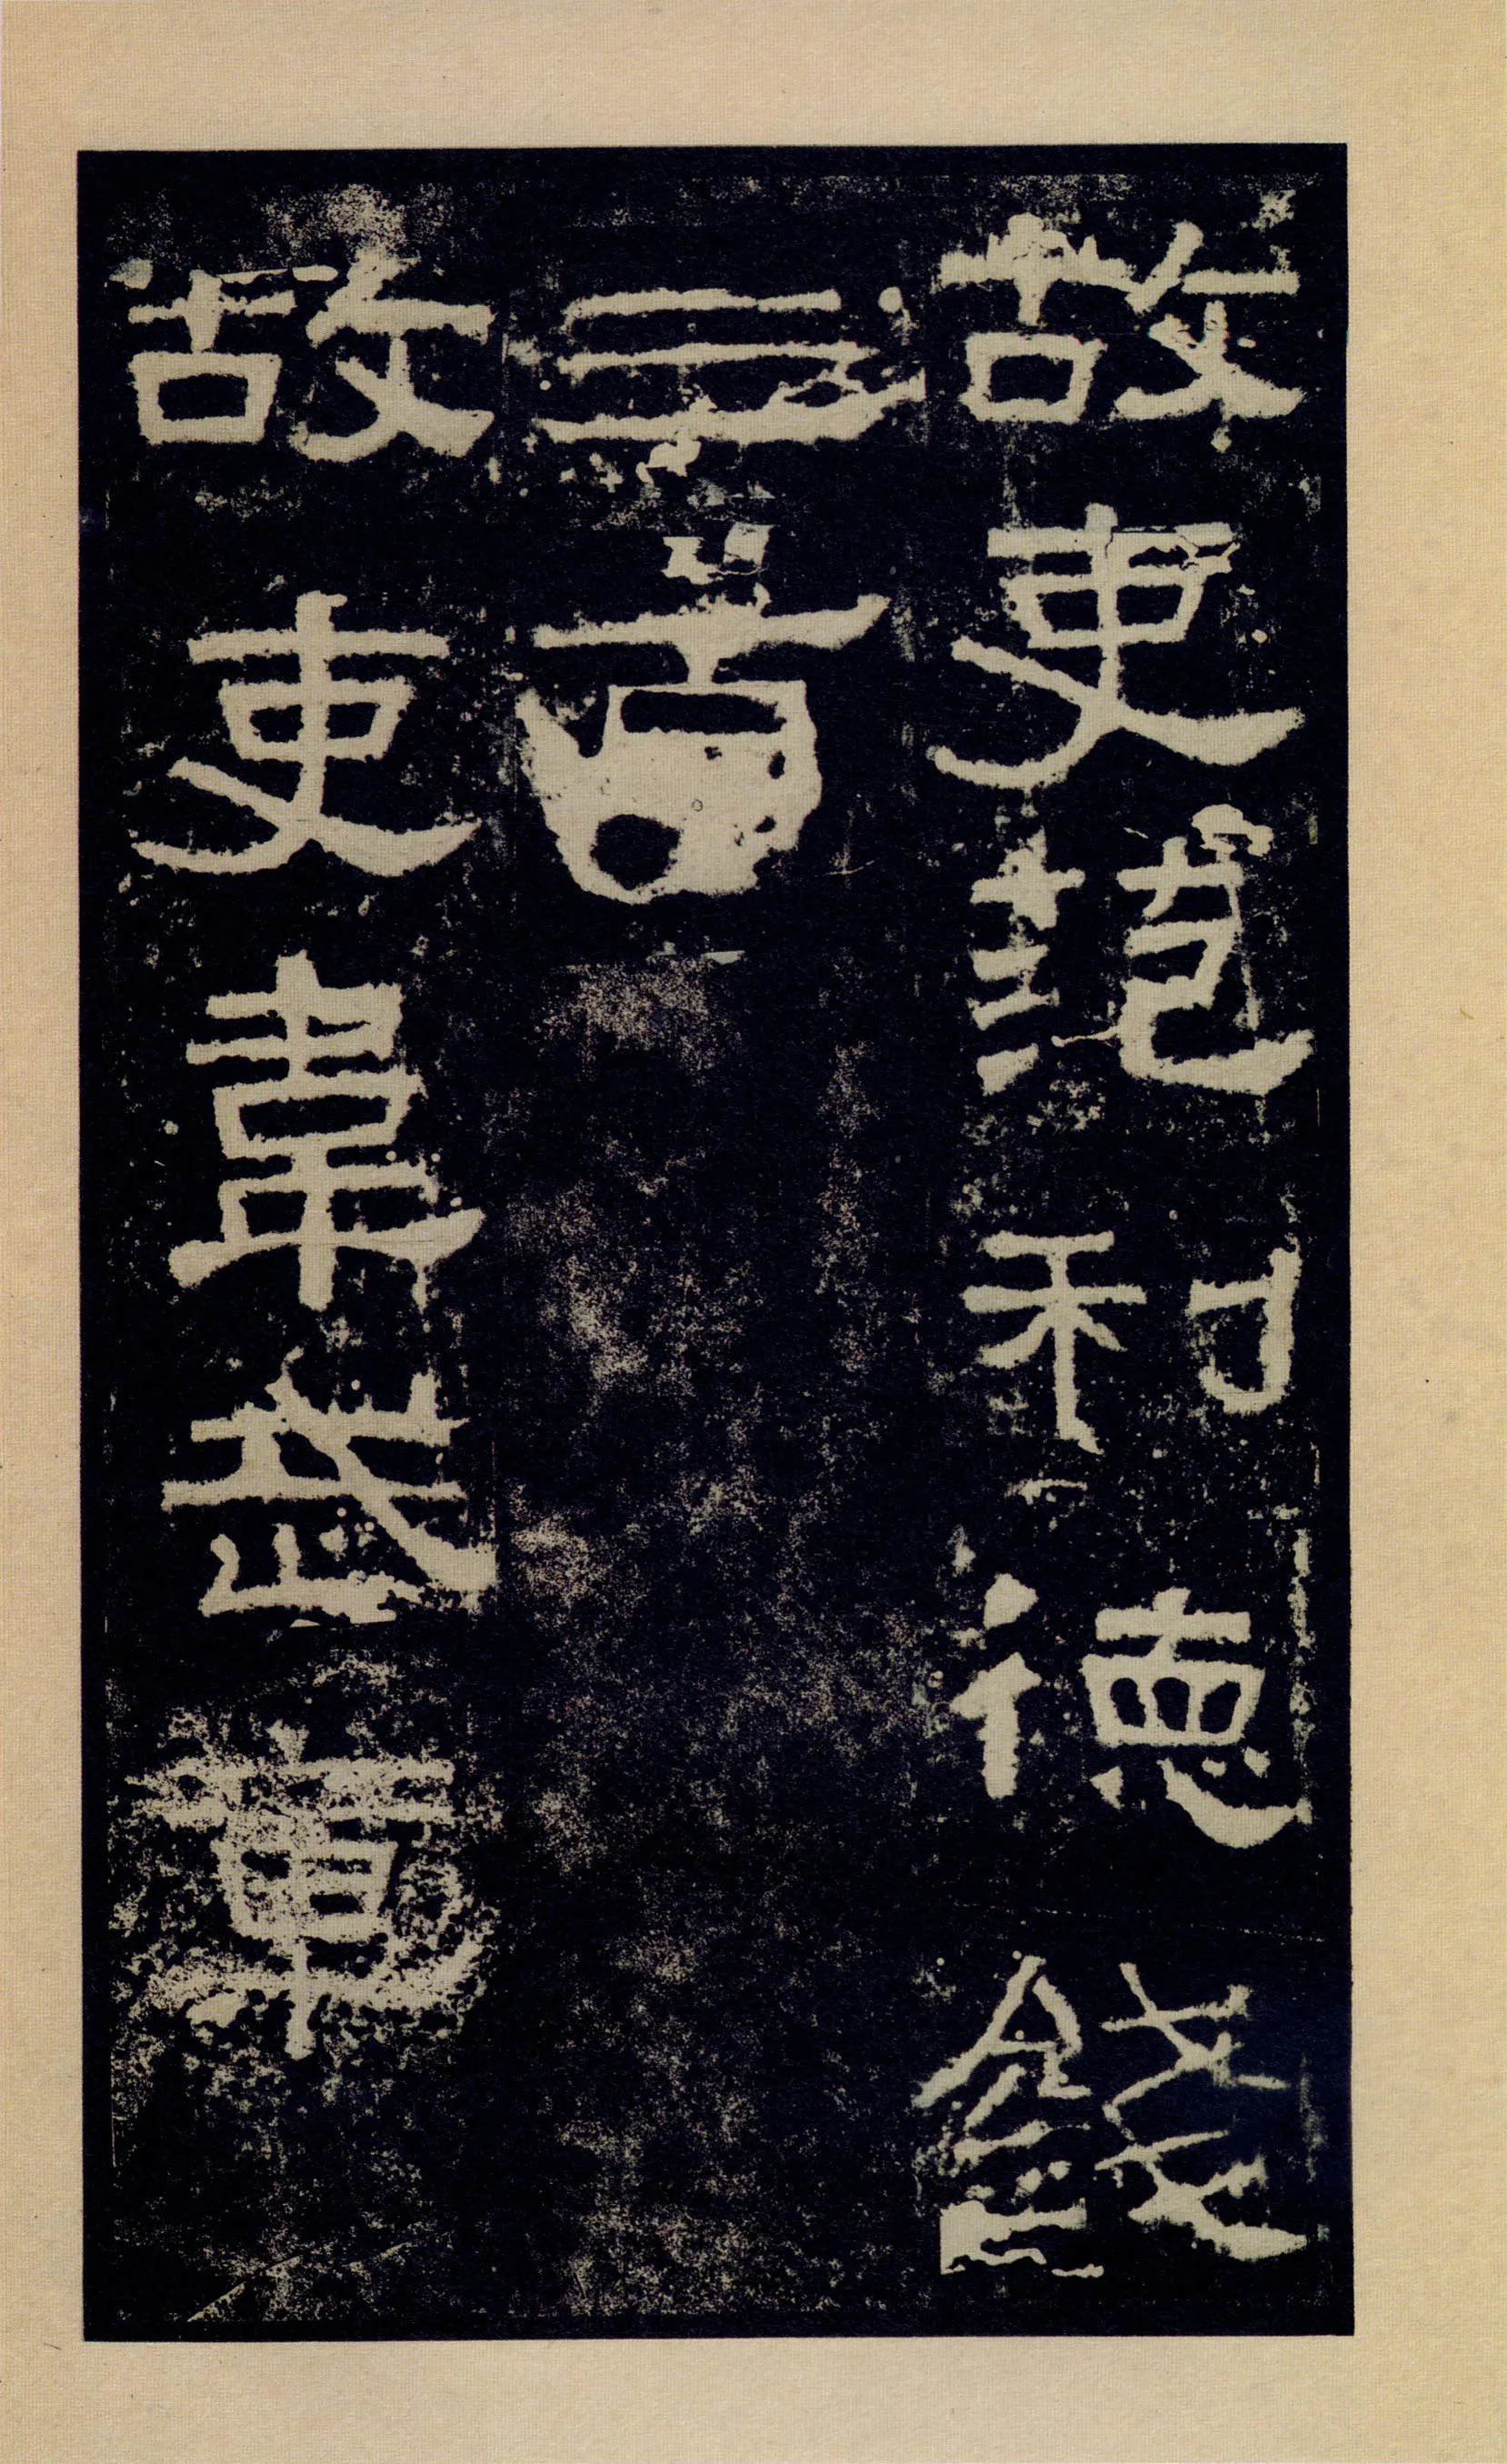 故吏范利德錢
三百
故吏韋武章